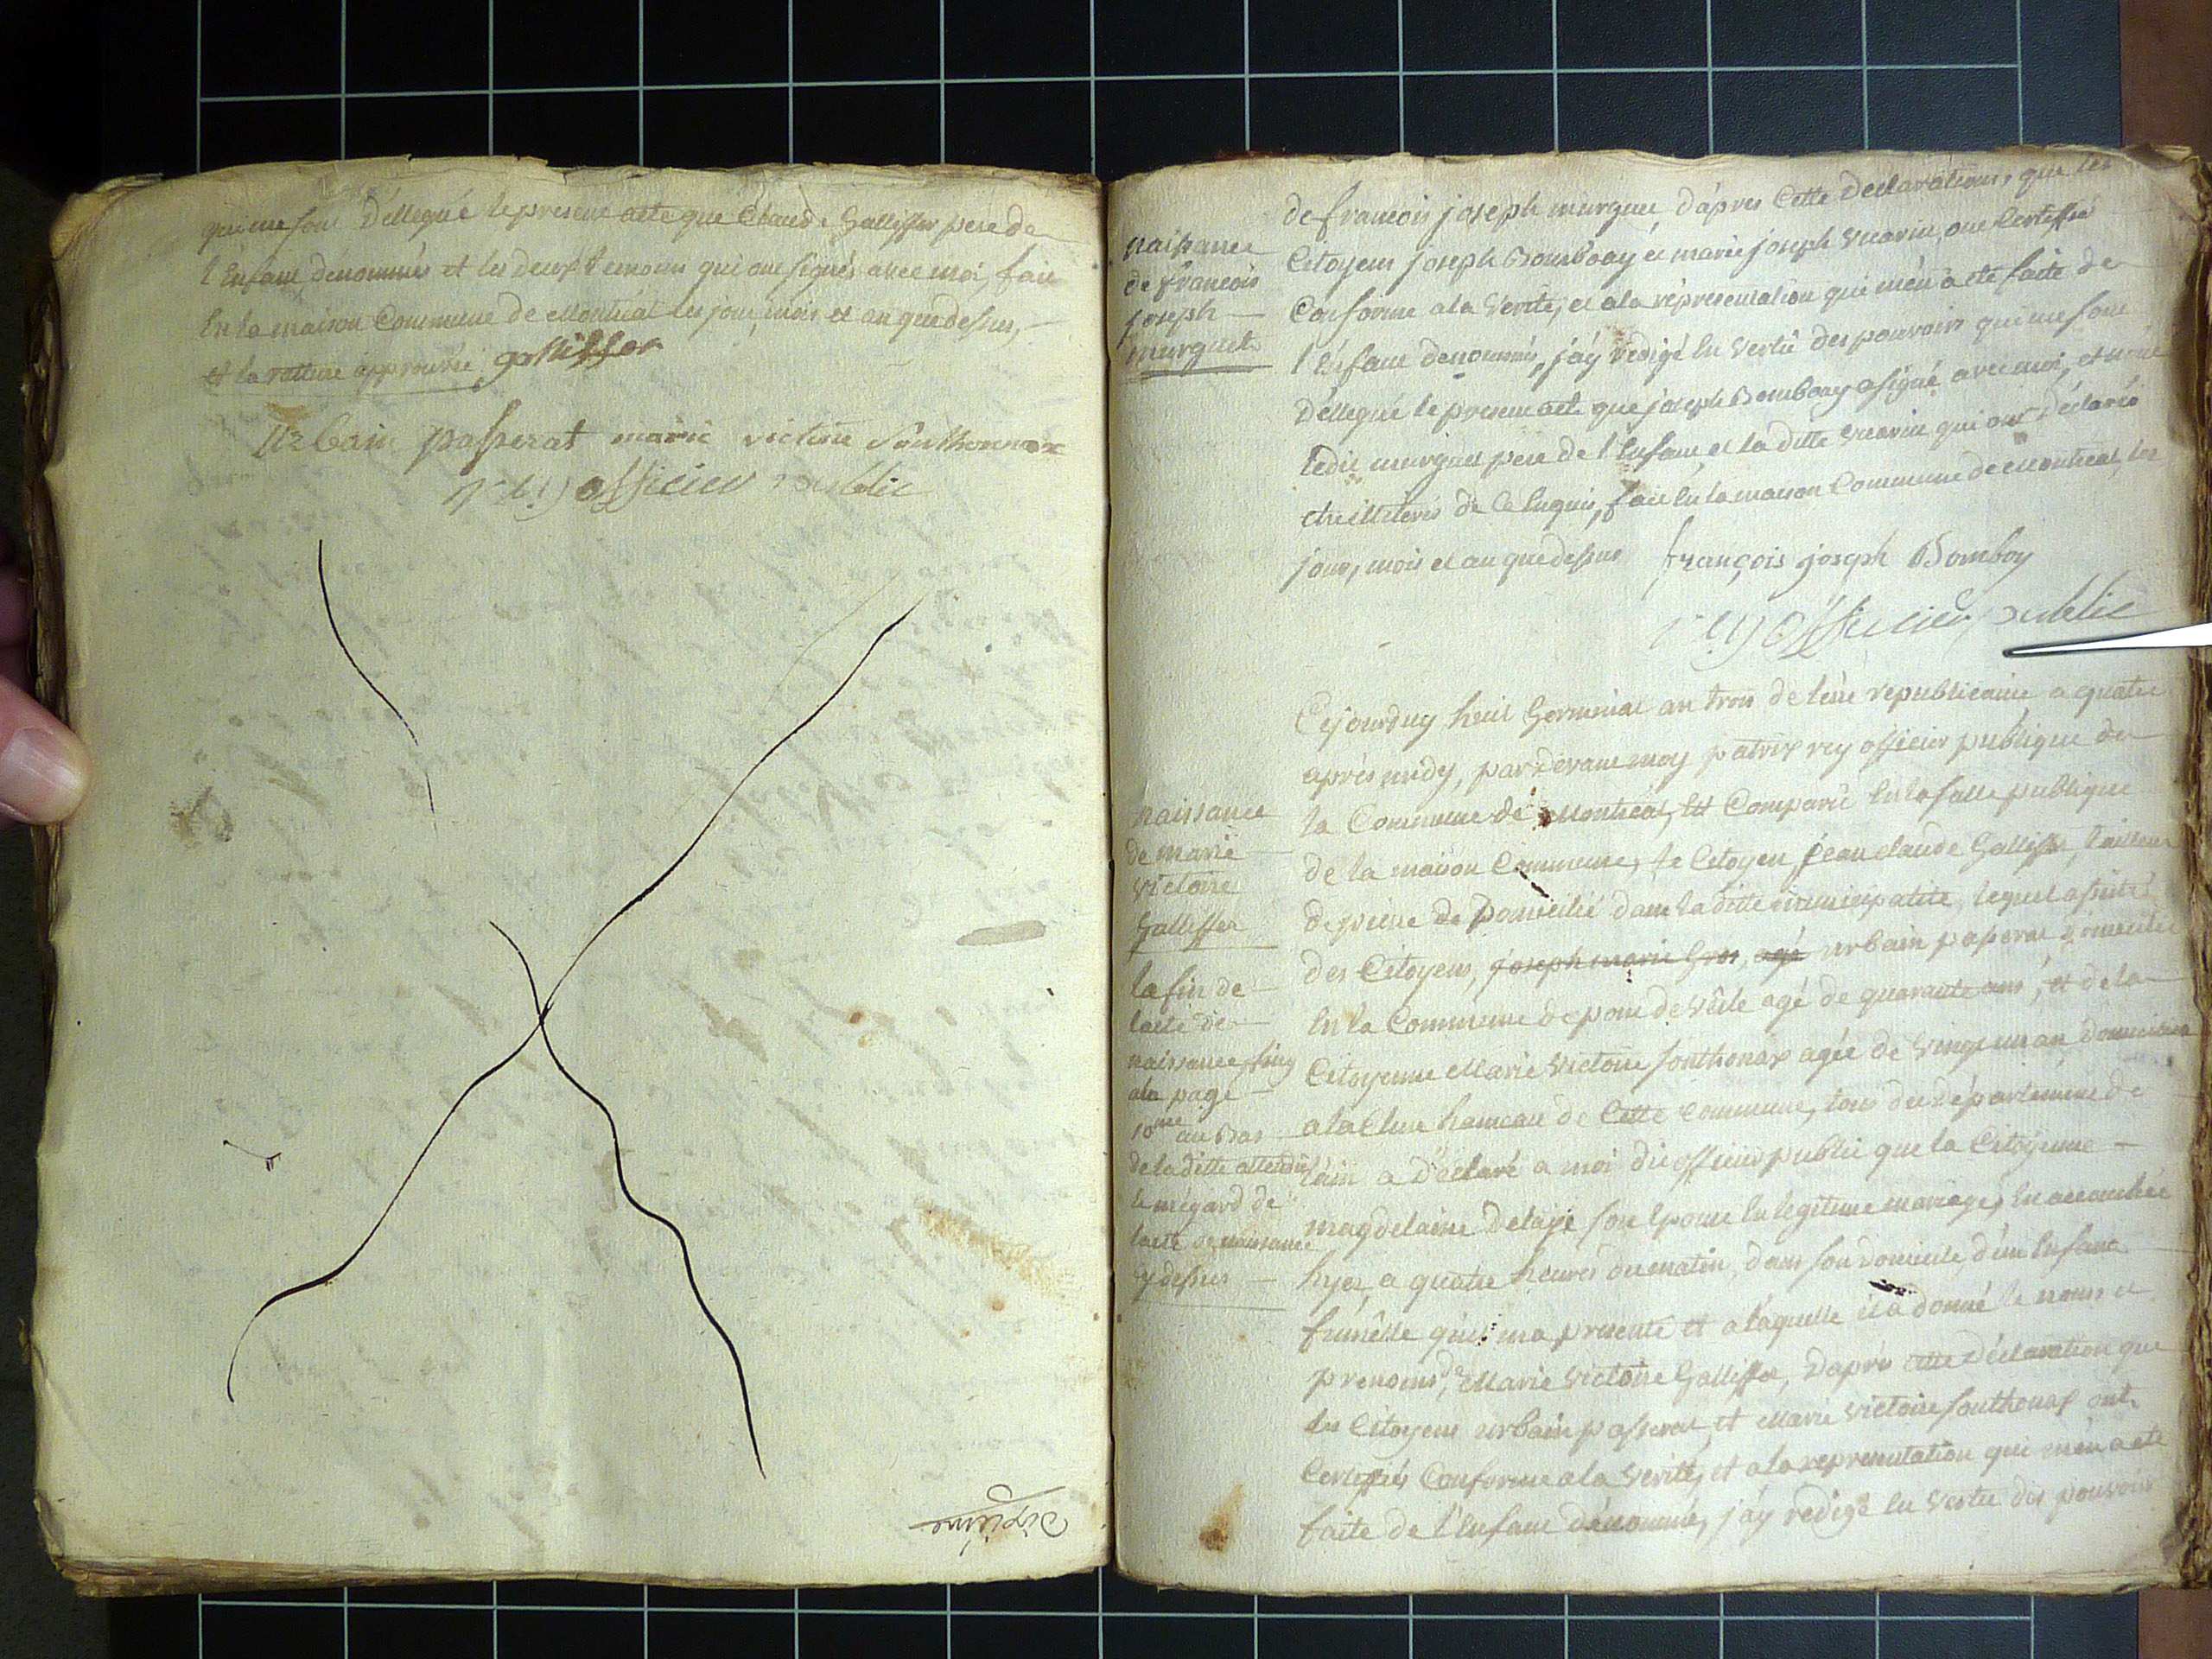 qui me sont délégué le present acte que Claude Galliffer pere de
l'Enfant dénommés et les deux temoins qui ont signés avec moi, fait
En la maison Commune de Montréal les jour, mois et an que dessus,
et la rature approuvée galliffer
Urbain passerat marie victoire Sonthonnax
rey officier public
dixième
naissance
de francois
joseph
murguet
de francois joseph murguet d'apres Cette Declarations, que les
Citoyens joseph Bomboay et marie joseph vuarin, ont Certiffié
Conforme a la verité, et a la répresentation qui m'en a eté faite de
l'Enfant dénommés, j'ay redigé En vertu des pouvoirs qui me sont
délegué le present acte que joseph Bomboay a signé avec moi, et non
ledit murguet pere de l'Enfant et la ditte vuarin qui ont déclaré
être illiterés de ce Enquis, fait En la maison Commune de Montréal, les
jour, mois et an que dessus françois joseph Bomboy
rey officier public
naissance
de marie
victoire
Galliffer
la fin de
l'acte de
naissance
a la page
10me au Bas
de la ditte attendu
le mégard de
l'acte de naissance
cy dessus
Cejourduy huit Germinal an trois de l'ère républicaine a quatre
après midy, pardevant moy patrix rey officier publique de
la Commune de Montréal, Est Comparu En la salle publique
de la maison Commune, le Citoyen jean claude Galliffer, tailleur
de pierre de Domicilié dans la ditte municipalité, lequel assisté
des Citoyens, joseph marie Gros, agé urbain passerat domicilié
En la Commune de pont de vêsle agé de quarante ans, et de la
Citoyenne Marie Victoire sonthonax agée de vingt un an domiciliée
a la Cluse hameau de Cette Commune, tous du département de
l'ain a Déclaré a moi dit officier public que la Citoyenne
magdelaine delaye son Epouse En légitime mariage, En accouchée
hyer a quatre heures du matin, dans son domicile, d'un Enfant
fémêlle qui m'a présenté et a laquelle il a donné le noms et
prenoms, de Marie Victoire Galliffer, d'après cette déclaration que
les Citoyens urbain passerat, et Marie Victoire sonthonax ont
Certiffiés Conforme a la verité, et a la representation qui m'en a eté
faite de l'Enfant dénommés, j'ay redigé En vertu des pouvoir